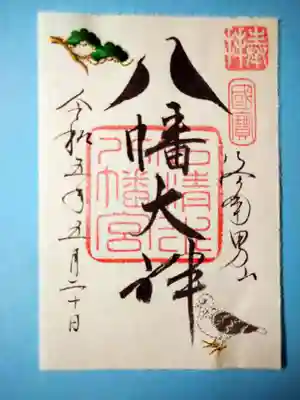 奉拝
國寶
京都男山
八幡大神
石清水八幡宮
令和五年五月二十日